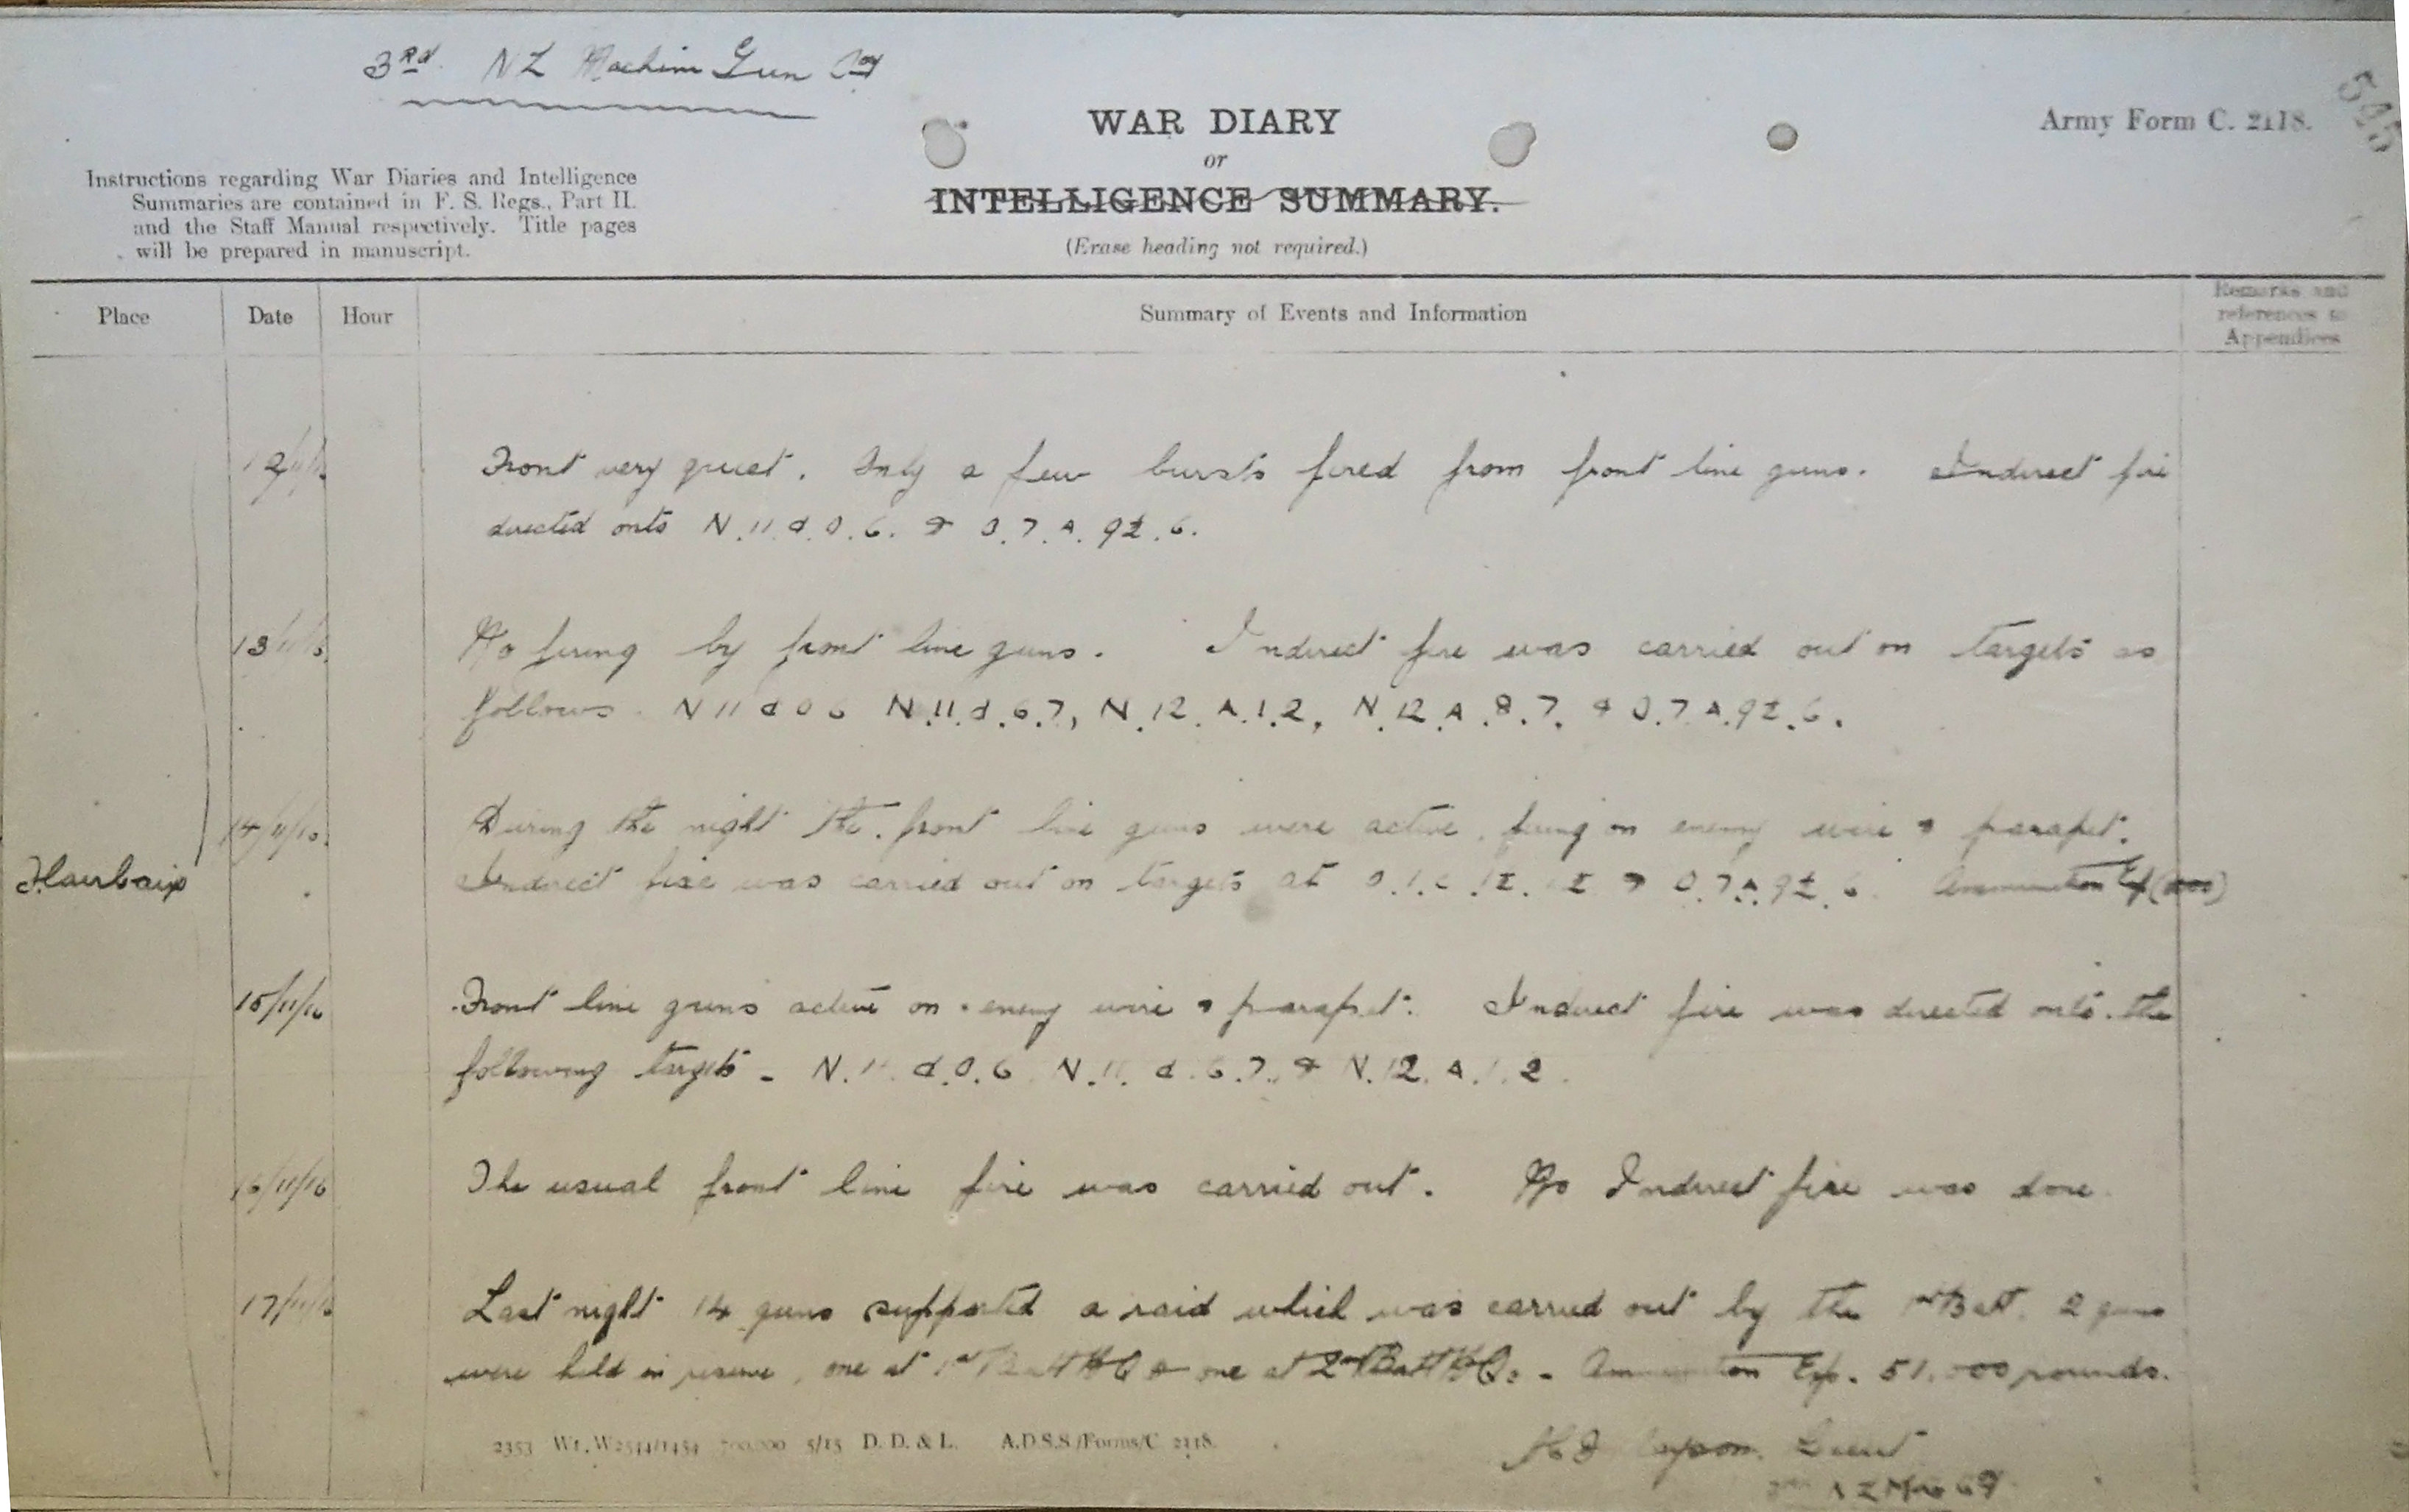 3rd. NZ Machine Gun Coy
WAR DIARY
or
INTELLIGENCE SUMMARY.
(Erase heading not required.)
Army Form C. 2118.
545
Instructions regarding War Diaries and Intelligence
Summaries are contained in F. S. Regs., Part II.
and the Staff Manual respectively. Title pages
will be prepared in manuscript.
Place Date Hour Summary of Events and Information Remarks and references to Appendices
12/11/16 Front very quiet. Only a few bursts fired from front line guns. Indirect fire
directed onto N.11.d.0.6. & O.7.A.9½.6.
13/11/16. No firing by front line guns. Indirect fire was carried out on targets as
follows. N 11 d 0 6 N.11.d.6.7, N.12.A.1.2, N.12.A.8.7. & O.7.A.9½.6.
14/11/16. During the night the front line guns were active, firing on enemy wire & parapet.
Flaurbaix Indirect fire was carried out on targets at O.1.c. & O.7.A.9½.6. Ammunition
15/11/16 Front line guns active on enemy wire & parapet. Indirect fire was directed onto the
following targets - N.11.d.0.6 N.11.d.6.7. & N.12.A.1.2.
16/11/16 The usual front line fire was carried out. No Indirect fire was done.
17/11/16 Last night 14 guns supported a raid which was carried out by the 1st Batt. 2 guns
were held in reserve, one at 1st Batt HQ & one at 2nd Batt HQs. - Ammunition Exp. 51,000 rounds.
2353 Wt. W2544/1454 700,000 5/15 D. D. & L. A.D.S.S./Forms/C. 2118.
Lieut
NZ